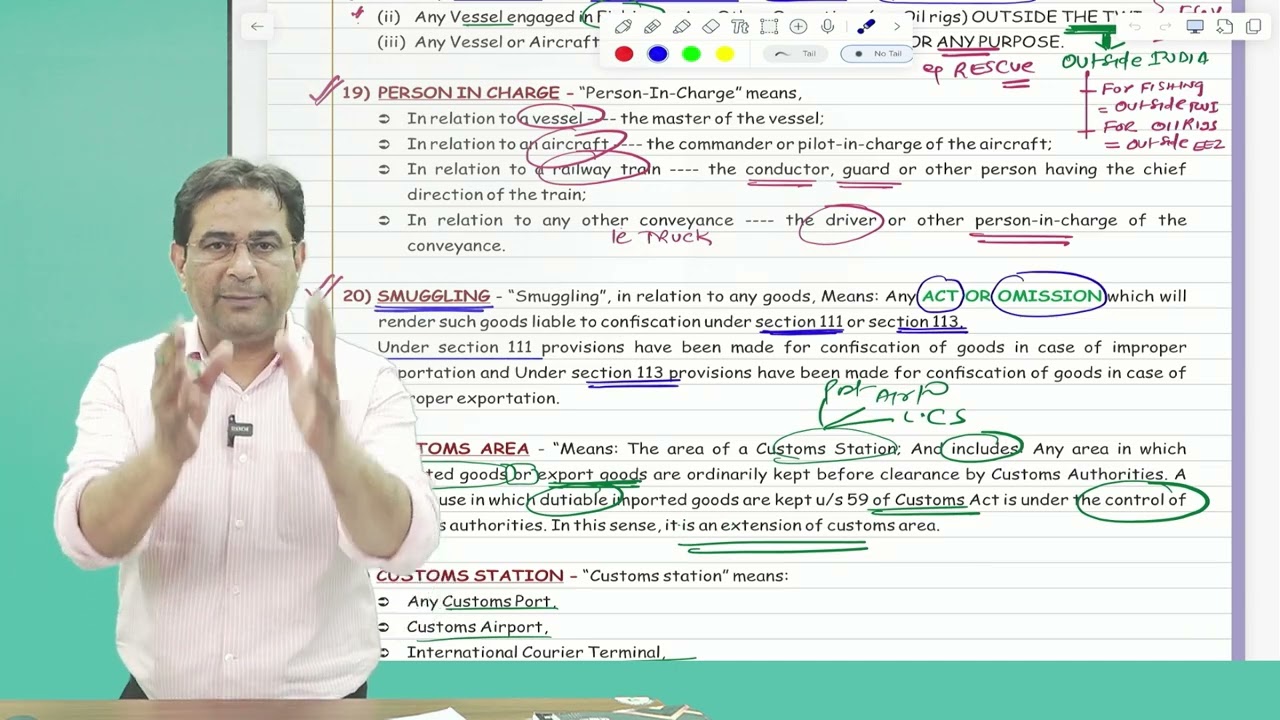 (ii) Any Vessel engaged in Oil rigs) OUTSIDE THE
(iii) Any Vessel or Aircraft OR ANY PURPOSE.
Tt
Tail
No Tail
eg RESCUE
OUtside INDIA
For FISHING
= outside
For Oil Rigs
= outside EEZ
19) PERSON IN CHARGE – “Person-In-Charge” means,
In relation to a vessel ---- the master of the vessel;
In relation to an aircraft ---- the commander or pilot-in-charge of the aircraft;
In relation to a railway train ---- the conductor, guard or other person having the chief
direction of the train;
In relation to any other conveyance ---- the driver or other person-in-charge of the
ie TRUCK
conveyance.
20) SMUGGLING - “Smuggling”, in relation to any goods, Means: Any ACT OR OMISSION which will
render such goods liable to confiscation under section 111 or section 113.
Under section 111 provisions have been made for confiscation of goods in case of improper
portation and Under section 113 provisions have been made for confiscation of goods in case of
roper exportation.
Port AirP
LCS
TOMS AREA - “Means: The area of a Customs Station; And includes Any area in which
ted goods or export goods are ordinarily kept before clearance by Customs Authorities. A
use in which dutiable imported goods are kept u/s 59 of Customs Act is under the control of
s authorities. In this sense, it is an extension of customs area.
CUSTOMS STATION – “Customs station” means:
Any Customs Port,
Customs Airport,
International Courier Terminal,